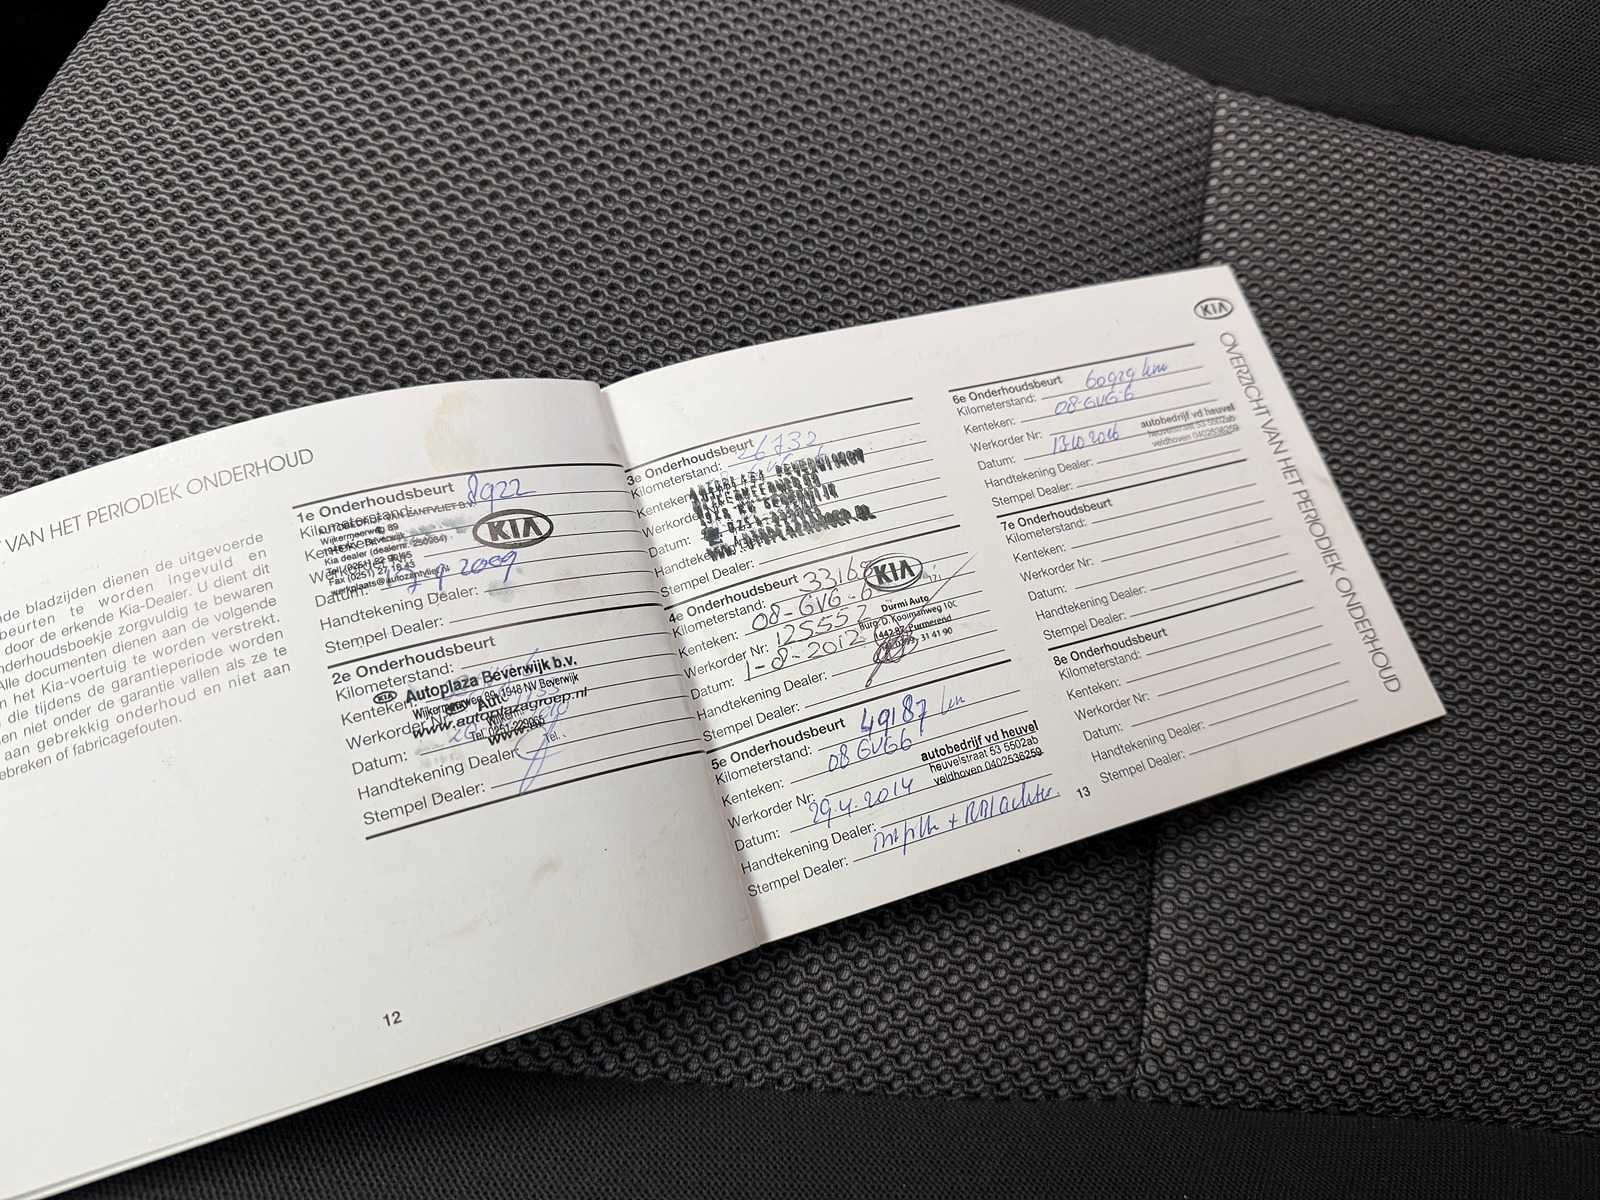 VAN HET PERIODIEK ONDERHOUD
de bladzijden dienen de uitgevoerde
beurten te worden ingevuld en
door de erkende Kia-Dealer. U dient dit
derhoudsboekje zorgvuldig te bewaren
Alle documenten dienen aan de volgende
n het Kia-voertuig te worden verstrekt.
die tijdens de garantieperiode worden
en niet onder de garantie vallen als ze te
aan gebrekkig onderhoud en niet aan
ebreken of fabricagefouten.
12
1e Onderhoudsbeurt
Kilometerstand: 8922
Wijkermeerweg 89
Kia dealer (dealernr. 250934)
Fax (0251) 27 18 43
KIA
Datum: 2009
Handtekening Dealer:
Stempel Dealer:
2e Onderhoudsbeurt
Kilometerstand:
KIA Autoplaza Beverwijk b.v.
Kenteken:
Wijkermeerweg 89, 1948 NV Beverwijk
www.autoplazagroep.nl
Werkorder
Tel. 0251-229065
Datum:
Handtekening Dealer
Stempel Dealer:
3e Onderhoudsbeurt
Kilometerstand: 26732
Kenteken
Werkorder
Datum:
Handtekening
Stempel Dealer:
4e Onderhoudsbeurt
Kilometerstand: 33168
KIA
Kenteken: 08-GVG-6
Durmi Auto
Burg. D. Kooimanweg 10C
Werkorder Nr: 125552
Purmerend
Datum: 1-8-2012
31 41 90
Handtekening Dealer:
Stempel Dealer:
5e Onderhoudsbeurt
Kilometerstand: 49187 km
Kenteken: 08 GVG6
Werkorder Nr:
autobedrijf vd heuvel
heuvelstraat 53 5502ab
veldhoven 0402536259
Datum: 29.4.2014
Handtekening Dealer:
Stempel Dealer:
13
6e Onderhoudsbeurt
Kilometerstand: 60929 km
Kenteken: 08 GVG6
Werkorder Nr:
autobedrijf vd heuvel
heuvelstraat 53 5502ab
veldhoven 0402536259
Datum: 13.10 2016
Handtekening Dealer:
Stempel Dealer:
7e Onderhoudsbeurt
Kilometerstand:
Kenteken:
Werkorder Nr:
Datum:
Handtekening Dealer:
Stempel Dealer:
8e Onderhoudsbeurt
Kilometerstand:
Kenteken:
Werkorder Nr:
Datum:
Handtekening Dealer:
Stempel Dealer:
KIA
OVERZICHT VAN HET PERIODIEK ONDERHOUD